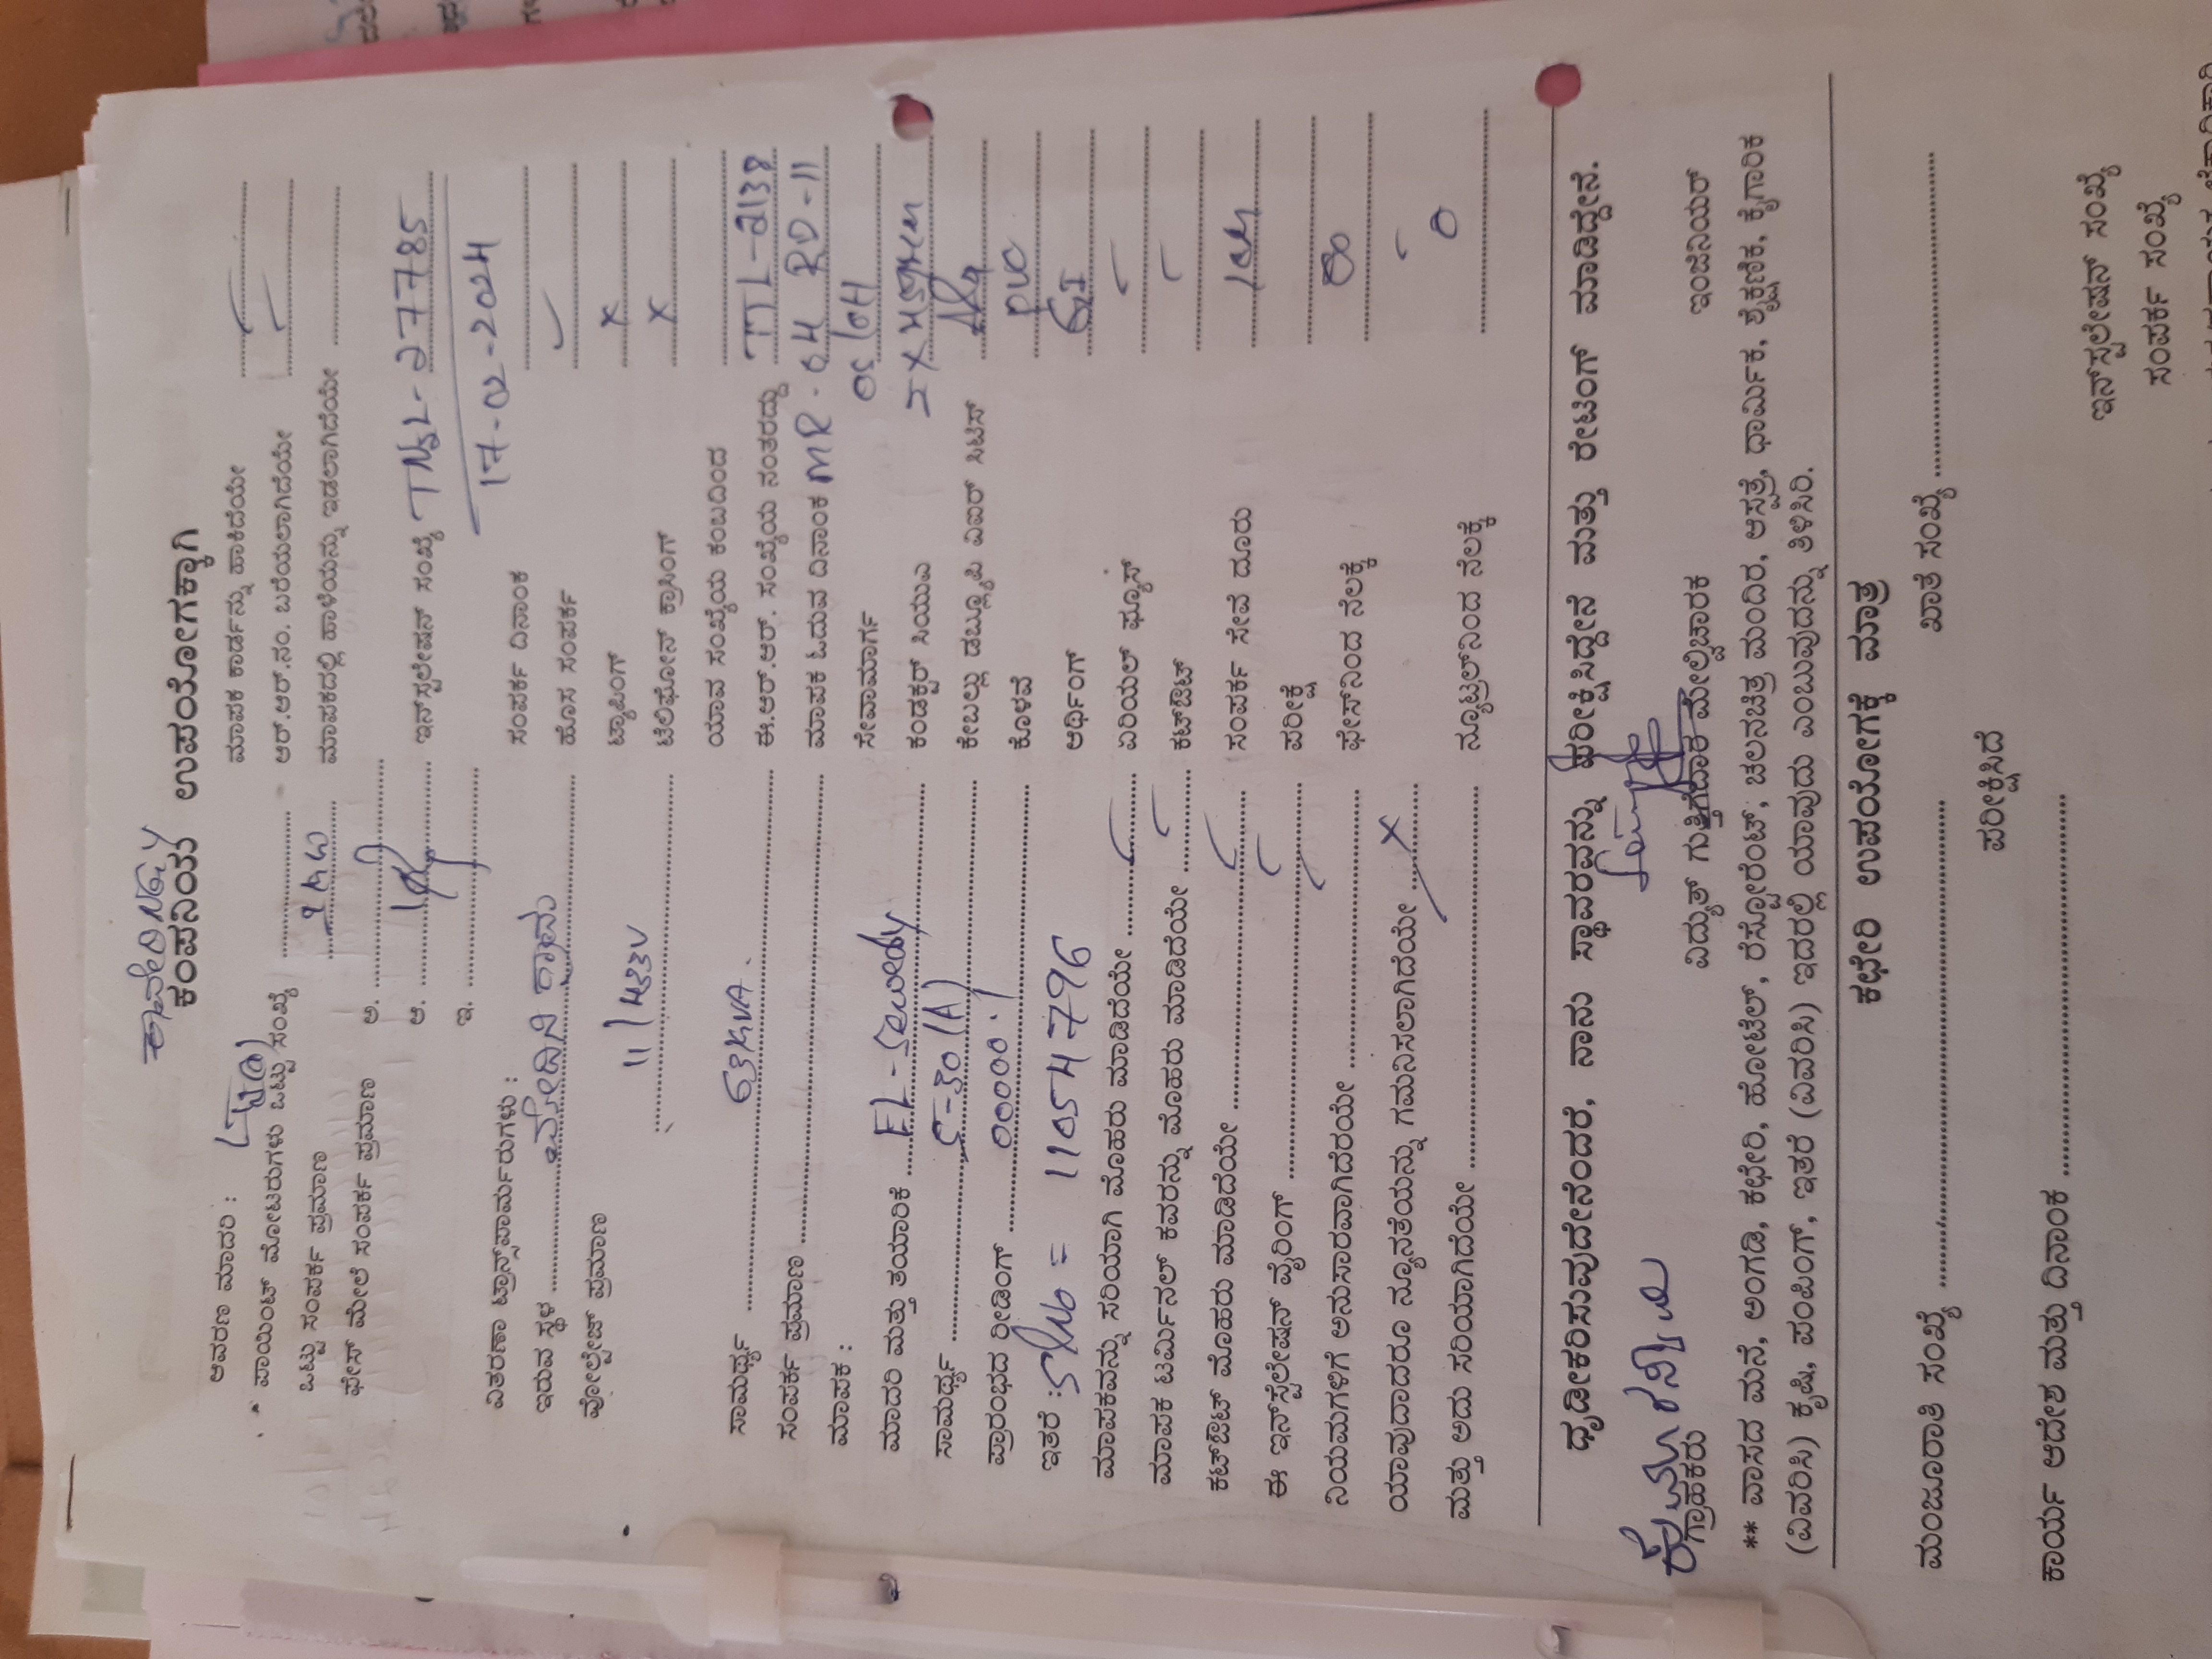 ಕಂಪನಿಯ ಉಪಯೋಗಕ್ಕಾಗಿ
ಆವರಣ ಮಾದರಿ :
ಮಾಪಕ ಕಾರ್ಡನ್ನು ಹಾಕಿದೆಯೇ
ಪಾಯಿಂಟ್ ಮೋಟರುಗಳು ಒಟ್ಟು ಸಂಖ್ಯೆ
ಆರ್.ಆರ್.ನಂ. ಬರೆಯಲಾಗಿದೆಯೇ
ಒಟ್ಟು ಸಂಪರ್ಕ ಪ್ರಮಾಣ
ಮಾಪಕದಲ್ಲಿ ಹಾಳೆಯನ್ನು ಇಡಲಾಗಿದೆಯೇ
ಫೇಸ್ ಮೇಲೆ ಸಂಪರ್ಕ ಪ್ರಮಾಣ ಅ.
ಆ. ಇನ್‌ಸ್ಟಲೇಷನ್ ಸಂಖ್ಯೆ TNSL-27785
ಇ. 17-02-2024
ವಿತರಣಾ ಟ್ರಾನ್ಸ್‌ಫಾರ್ಮರುಗಳು : ಸಂಪರ್ಕ ದಿನಾಂಕ
ಇರುವ ಸ್ಥಳ ಹೊಸ ಸಂಪರ್ಕ
ವೋಲ್ಟೇಜ್ ಪ್ರಮಾಣ 11/433V ಟ್ಯಾಪಿಂಗ್ x
ಟೆಲಿಫೋನ್ ಕ್ರಾಸಿಂಗ್ x
ಯಾವ ಸಂಖ್ಯೆಯ ಕಂಬದಿಂದ
ಸಾಮರ್ಥ್ಯ 63KVA. ಈ.ಆರ್.ಆರ್. ಸಂಖ್ಯೆಯ ನಂತರದ್ದು TTL-2138
ಸಂಪರ್ಕ ಪ್ರಮಾಣ ಮಾಪಕ ಓದುವ ದಿನಾಂಕ MR-04 RD-11
ಮಾಪಕ : ಸೇವಾಮಾರ್ಗ
ಮಾದರಿ ಮತ್ತು ತಯಾರಿಕೆ ಕಂಡಕ್ಟರ್ ಸಿಯುಎ
ಸಾಮರ್ಥ್ಯ 5-30(A) ಕೇಬಲ್ಲು ಡಬ್ಲ್ಯೂಪಿ ಎವರ್ ಸಿಟಿಸ್
ಪ್ರಾರಂಭದ ರೀಡಿಂಗ್ 00000.1 ಕೊಳವೆ PVC
ಇತರೆ : Sl No = 11054796 ಅರ್ಥಿಂಗ್ GI
ಮಾಪಕವನ್ನು ಸರಿಯಾಗಿ ಮೊಹರು ಮಾಡಿದೆಯೇ ಏರಿಯಲ್ ಫ್ಯೂಸ್
ಮಾಪಕ ಟರ್ಮಿನಲ್ ಕವರನ್ನು ಮೊಹರು ಮಾಡಿದೆಯೇ ಕಟ್‌ಔಟ್
ಕಟ್‌ಔಟ್ ಮೊಹರು ಮಾಡಿದೆಯೇ ಸಂಪರ್ಕ ಸೇವೆ ದೂರು
ಈ ಇನ್‌ಸ್ಟಲೇಷನ್ ವೈರಿಂಗ್ ಪರೀಕ್ಷೆ
ನಿಯಮಗಳಿಗೆ ಅನುಸಾರವಾಗಿದೆರಯೇ ಫೇಸ್‌ನಿಂದ ನೆಲಕ್ಕೆ
ಯಾವುದಾದರೂ ನ್ಯೂನತೆಯನ್ನು ಗಮನಿಸಲಾಗಿದೆಯೇ x
ಮತ್ತು ಅದು ಸರಿಯಾಗಿದೆಯೇ ನ್ಯೂಟ್ರಲ್‌ನಿಂದ ನೆಲಕ್ಕೆ 0
ಧೃಡೀಕರಿಸುವುದೇನೆಂದರೆ, ನಾನು ಸ್ಥಾವರವನ್ನು ಪರೀಕ್ಷಿಸಿದ್ದೇನೆ ಮತ್ತು ರೇಟಿಂಗ್ ಮಾಡಿದ್ದೇನೆ.
ಗ್ರಾಹಕರು ವಿದ್ಯುತ್ ಗುತ್ತಿಗೆದಾರ ಮೇಲ್ವಿಚಾರಕ ಇಂಜಿನಿಯರ್
** ವಾಸದ ಮನೆ, ಅಂಗಡಿ, ಕಛೇರಿ, ಹೋಟೆಲ್, ರೆಸ್ಟೋರೆಂಟ್, ಚಲನಚಿತ್ರ ಮಂದಿರ, ಆಸ್ಪತ್ರೆ, ಧಾರ್ಮಿಕ, ಶೈಕ್ಷಣಿಕ, ಕೈಗಾರಿಕ
(ವಿವರಿಸಿ) ಕೃಷಿ, ಪಂಪಿಂಗ್, ಇತರೆ (ವಿವರಿಸಿ) ಇದರಲ್ಲಿ ಯಾವುದು ಎಂಬುವುದನ್ನು ತಿಳಿಸಿರಿ.
ಕಛೇರಿ ಉಪಯೋಗಕ್ಕೆ ಮಾತ್ರ
ಮಂಜೂರಾತಿ ಸಂಖ್ಯೆ ಖಾತೆ ಸಂಖ್ಯೆ
ಪರೀಕ್ಷಿಸಿದೆ
ಕಾರ್ಯ ಆದೇಶ ಮತ್ತು ದಿನಾಂಕ
ಇನ್‌ಸ್ಟಲೇಷನ್ ಸಂಖ್ಯೆ
ಸಂಪರ್ಕ ಸಂಖ್ಯೆ